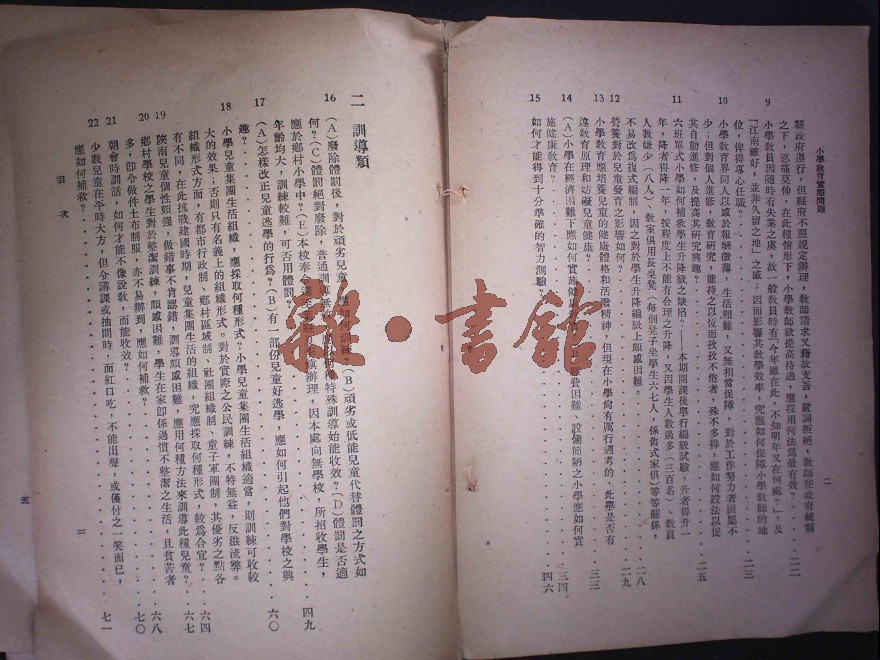 小學教育實際問題
二
縣政府遵行,但縣府不照規定辦理,教師請求又藉故支吾,嚴詞拒絕,教師在政府統制
之下,忍痛莫伸,在此種情形下,小學教師欲提高待遇,應採用何法爲最有效?二二
9 小學教員因隨時有失業之虞,故一般教員時有「今年雖在此,不知明年又在何處。」及
「江南雖好,並非久留之地」之感;因而影響其教學效率,究應如何保障小學教師的地
位,俾得專心任職?二三
10 小學教育界同人以感於報酬微薄,生活艱難,又無相當保障,對於工作努力者固屬不
少;但對個人進修,教育研究,能持之以恆而孜孜不倦者,殊不多得,應如何設法以促
其自動進修,及提高其研究興趣?二五
11 六班單式小學如何補救學生升降級之缺陷?——本期開課後舉行編級試驗,升者得升一
年,降者得降一年,按程度上不能有合理之升降,又因學生人數過多(三百名)教員
人數嫌少(八人),教室俱用長桌凳(每個凳子坐學生六七人,係舊式家俱)等等關係,
不易改爲複式編制,因之對於學生升降編級上頗感困難。二八
12 營養對於兒童發育之影響如何?二九
13 小學教育應培養兒童的健康體格和活潑精神,但現在小學尚有厲行週考的,此舉是否有
違教育原理和妨礙兒童健康?三三
14 (A)小學在經濟困難下應如何實施健康 費困難、設備簡陋之小學應如何實
施健康教育?三四
15 如何才能得到十分準確的智力測驗?四六
二 訓導類
16 (A)廢除體罰後,對於頑劣兒童,應如何訓練?(B)頑劣或低能兒童代替體罰之方式如
何?(C)體罰絕對廢除,普通訓導無效 何種特殊訓導始能收效?(D)體罰是否適
應於鄉村小學中?(E)本校奉令 鎮辦理,因本處向無學校,所招收學生,
年齡均大,訓練較難,可否用體罰?四九
17 (A)怎樣改正兒童逃學的行爲?(B)有一部份兒童好逃學,應如何引起他們對學校之興
趣?六〇
18 小學兒童集團生活組織,應採取何種形式?小學兒童集團生活組織適當,則訓練可收較
大的效果;否則只有名義上的組織形式。對於實際之公民訓練,不特無益,反滋流弊。
組織形式方面,有都市行政制、鄉村區域制、社團組織制、童子軍團制,其優劣之點各
有不同,在此抗戰建國時期,兒童集團生活的組織,究應採取何種形式,較爲合宜?六四
19 陝南兒童個性頗強,做錯事不肯認錯,訓導頗感困難,應用何種方法來訓導此種兒童?六七
20 鄉村學校之學生對於整潔訓練,頗感困難,學生在家卽係過慣不整潔之生活,且貧苦者
多,卽令做件土布制服,亦不易辦到,應如何補救?六八
21 朝會時訓話,如何才能不像說教,而能收效?七〇
22 少數兒童在平時大方,但令講課或抽問時,面紅口吃,不能出聲,或僅付之一笑而已,
應如何補救?七一
目 次
五
雜·書館